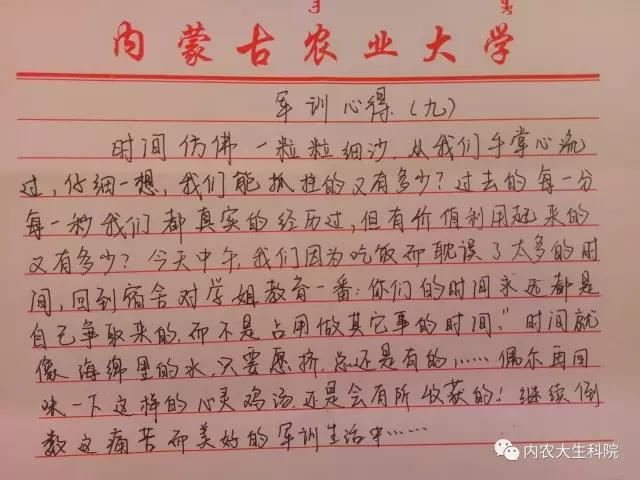 内蒙古农业大学
军训心得(九)
时间仿佛一粒粒细沙,从我们手掌心流
过,仔细一想,我们能抓住的又有多少?过去的每一分
每一秒我们都真实的经历过,但有价值利用起来的
又有多少?今天中午,我们因为吃饭而耽误了太多的时
间,回到宿舍对学姐教育一番:你们的时间永远都是
自己争取来的,而不是占用做其它事的时间,"时间就
像海绵里的水,只要愿挤,总还是有的……偶尔再回
味一下这样的心灵鸡汤还是会有所收获的!继续倒
数这痛苦而美好的军训生活中……
内农大生科院